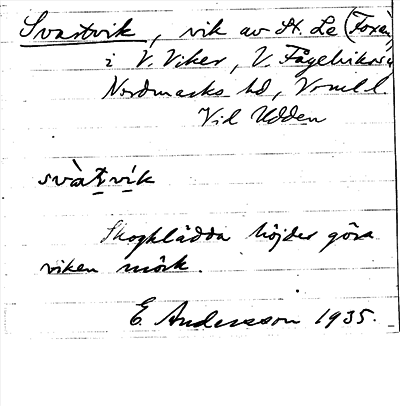 Svartvik, vik av St. Le (Foxen)
i V. Viker, V. Fågelviks sn
Nordmarks hd, Vrml l.
Vid Udden
svàʈvík
Skogklädda höjder göra
viken mörk.
E. Andersson 1935.